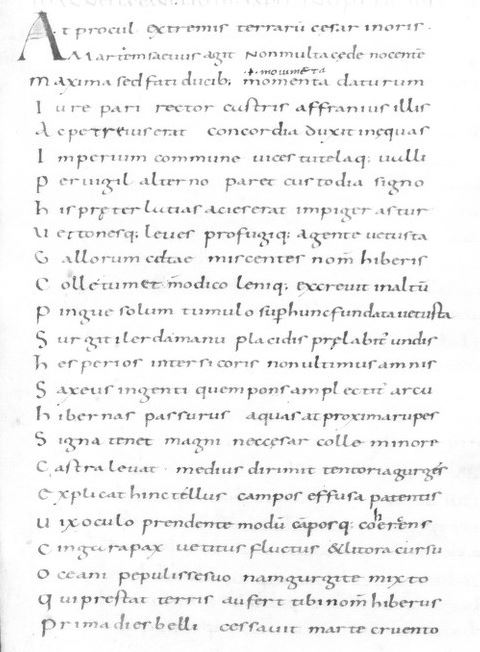 At procul extremis terrarū cesar inoris.
Martem saeuus agit Nonmulta cęde nocentē
+. moumēta
maxima sed fati ducib; momenta daturum
Iure pari rector castris affranius illis
Ac petreius erat concordia duxit inęquas
Imperium commune uices tutelaq; ualli
Peruigil alterno paret custodia signo
his pręter latias acies erat impiger astur
Uettonesq; leues profugiq; agente uetusta
Gallorum celtae miscentes nom̄ hiberis
Colle tumet m̄odico leniq; excreuit inaltū
Pingue solum tumulo sup̄hunc fundata uetusta
Surgit ilerda manu placidis pręlabit̄ undis
hesperios inter sicoris non ultimus amnis
Saxeus ingenti quem pons amplectit̄ arcu
hibernas passurus aquas at proxima rupes
Signa tenet magni neccesar colle minore
Castra leuat. medius dirimit tentoria gurges
Explicat hinc tellus campos effusa patentis
Uix oculo prendente modū cāposq; coherčens
Cinga rapax uetitus fluctus &litora cursu
Oceani pepulisse suo nam gurgite mixto
Qui prestat terris aufert tibi nom̄ hiberus
Prima dies belli cessauit marte cruento